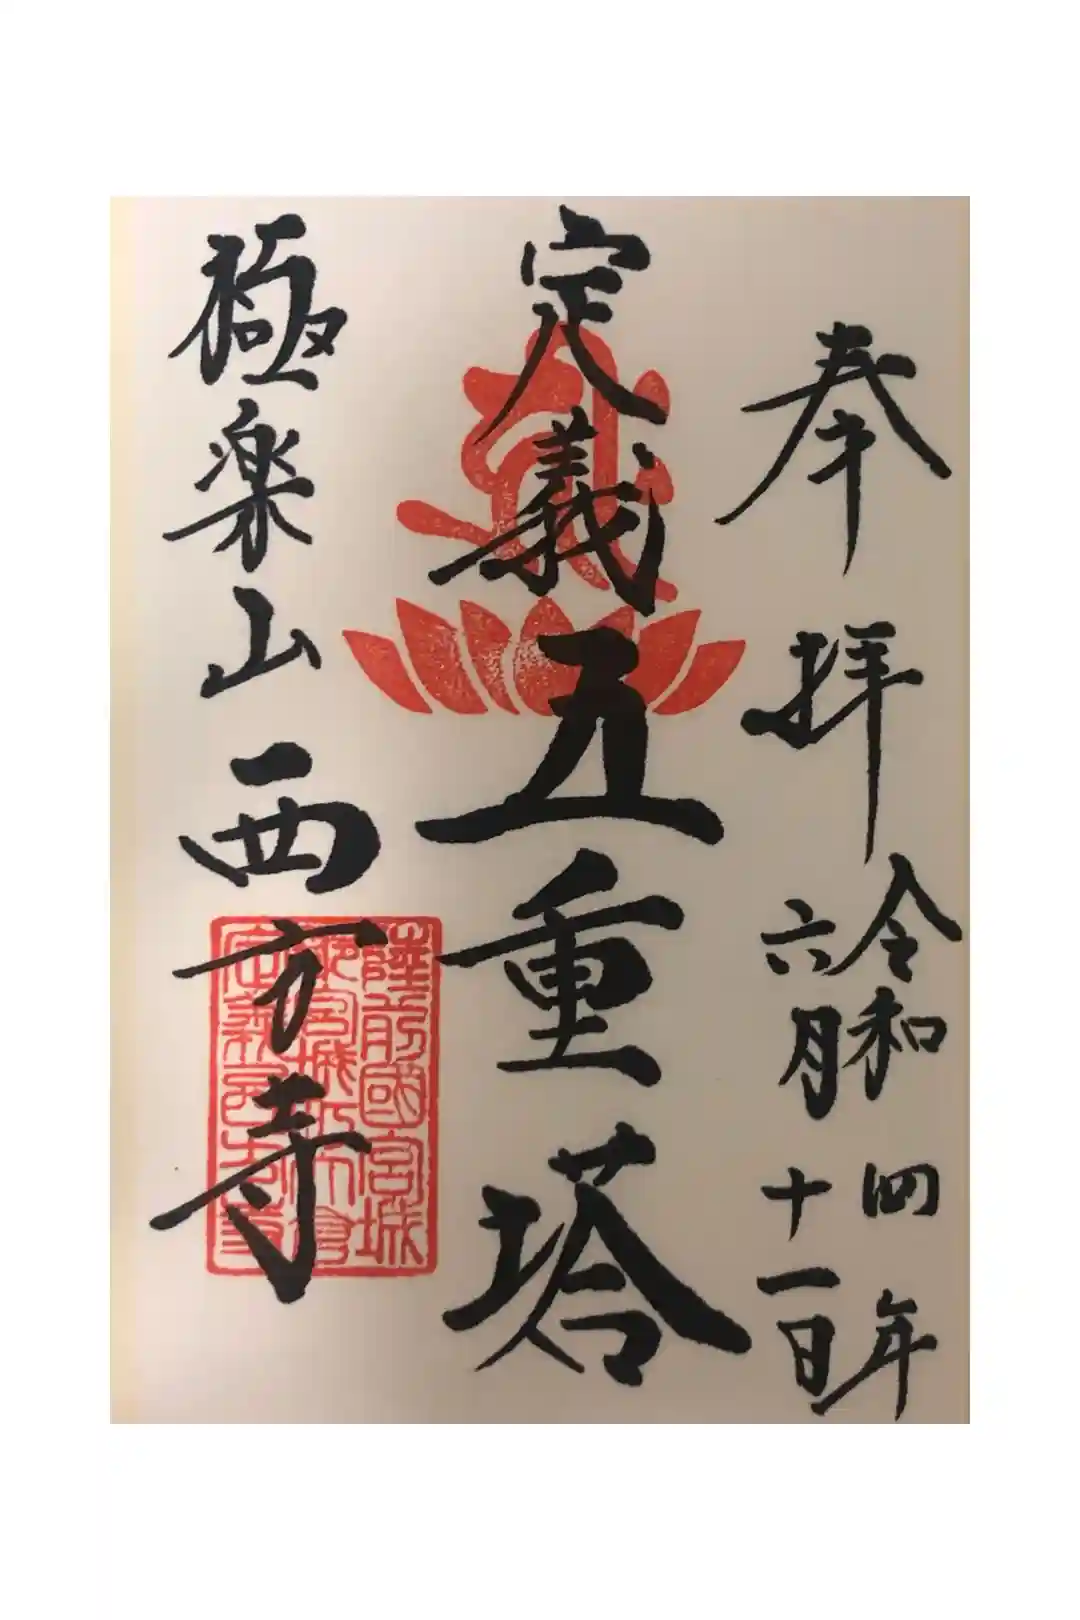 奉拝
令和四年
六月十一日
定義五重塔
極楽山西方寺
陸前國宮城
郡宮城町大倉
定義西方寺